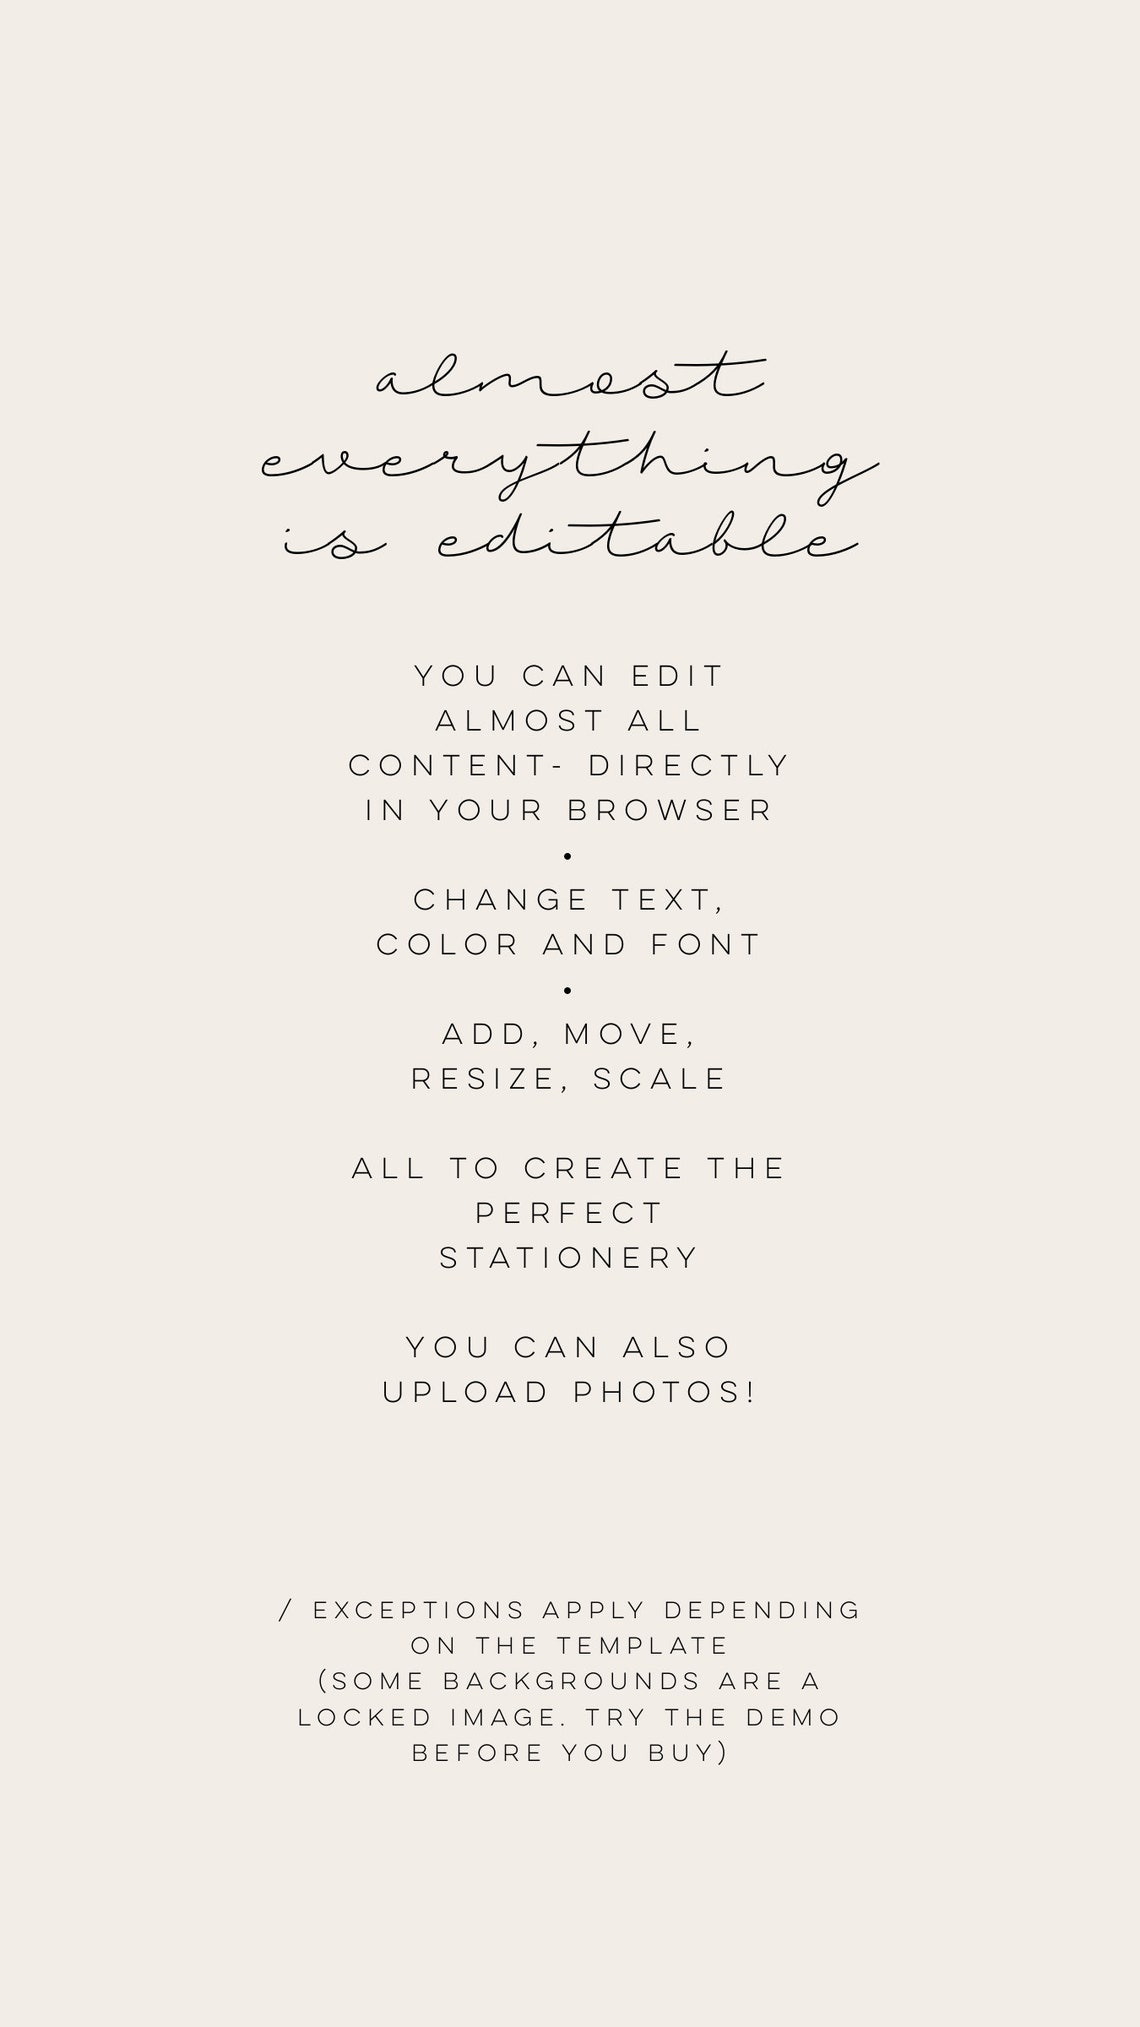 almost
everything
is editable
YOU CAN EDIT
ALMOST ALL
CONTENT- DIRECTLY
IN YOUR BROWSER
•
CHANGE TEXT,
COLOR AND FONT
•
ADD, MOVE,
RESIZE, SCALE
ALL TO CREATE THE
PERFECT
STATIONERY
YOU CAN ALSO
UPLOAD PHOTOS!
/ EXCEPTIONS APPLY DEPENDING
ON THE TEMPLATE
(SOME BACKGROUNDS ARE A
LOCKED IMAGE. TRY THE DEMO
BEFORE YOU BUY)